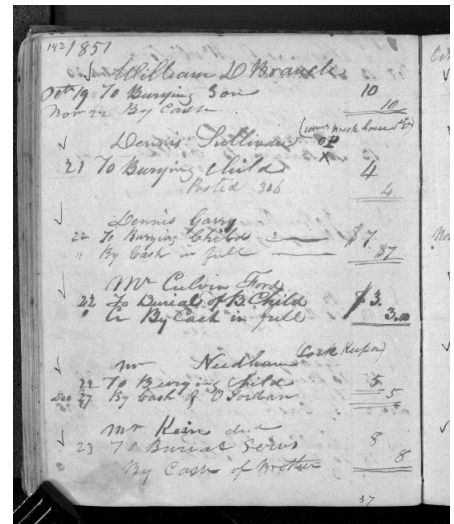 142 1851
William D Branch
Octr 19 To Burying Son 10
Nov 22 By Cash 10
Dennis Sullivan
21 To Burying Child 4
Posted 306 4
Dennis Garry
22 To Burying Child $7
" By Cash in full $7
Mr Calvin Ford
22 To Burial of B. Child $3.
" Cr By Cash in full 3.00
Mr Needham
22 To Burying Child 5
Dec 27 By Cash of 5
Mr Kein
23 To Burial 8
By Cash of Brother 8
37